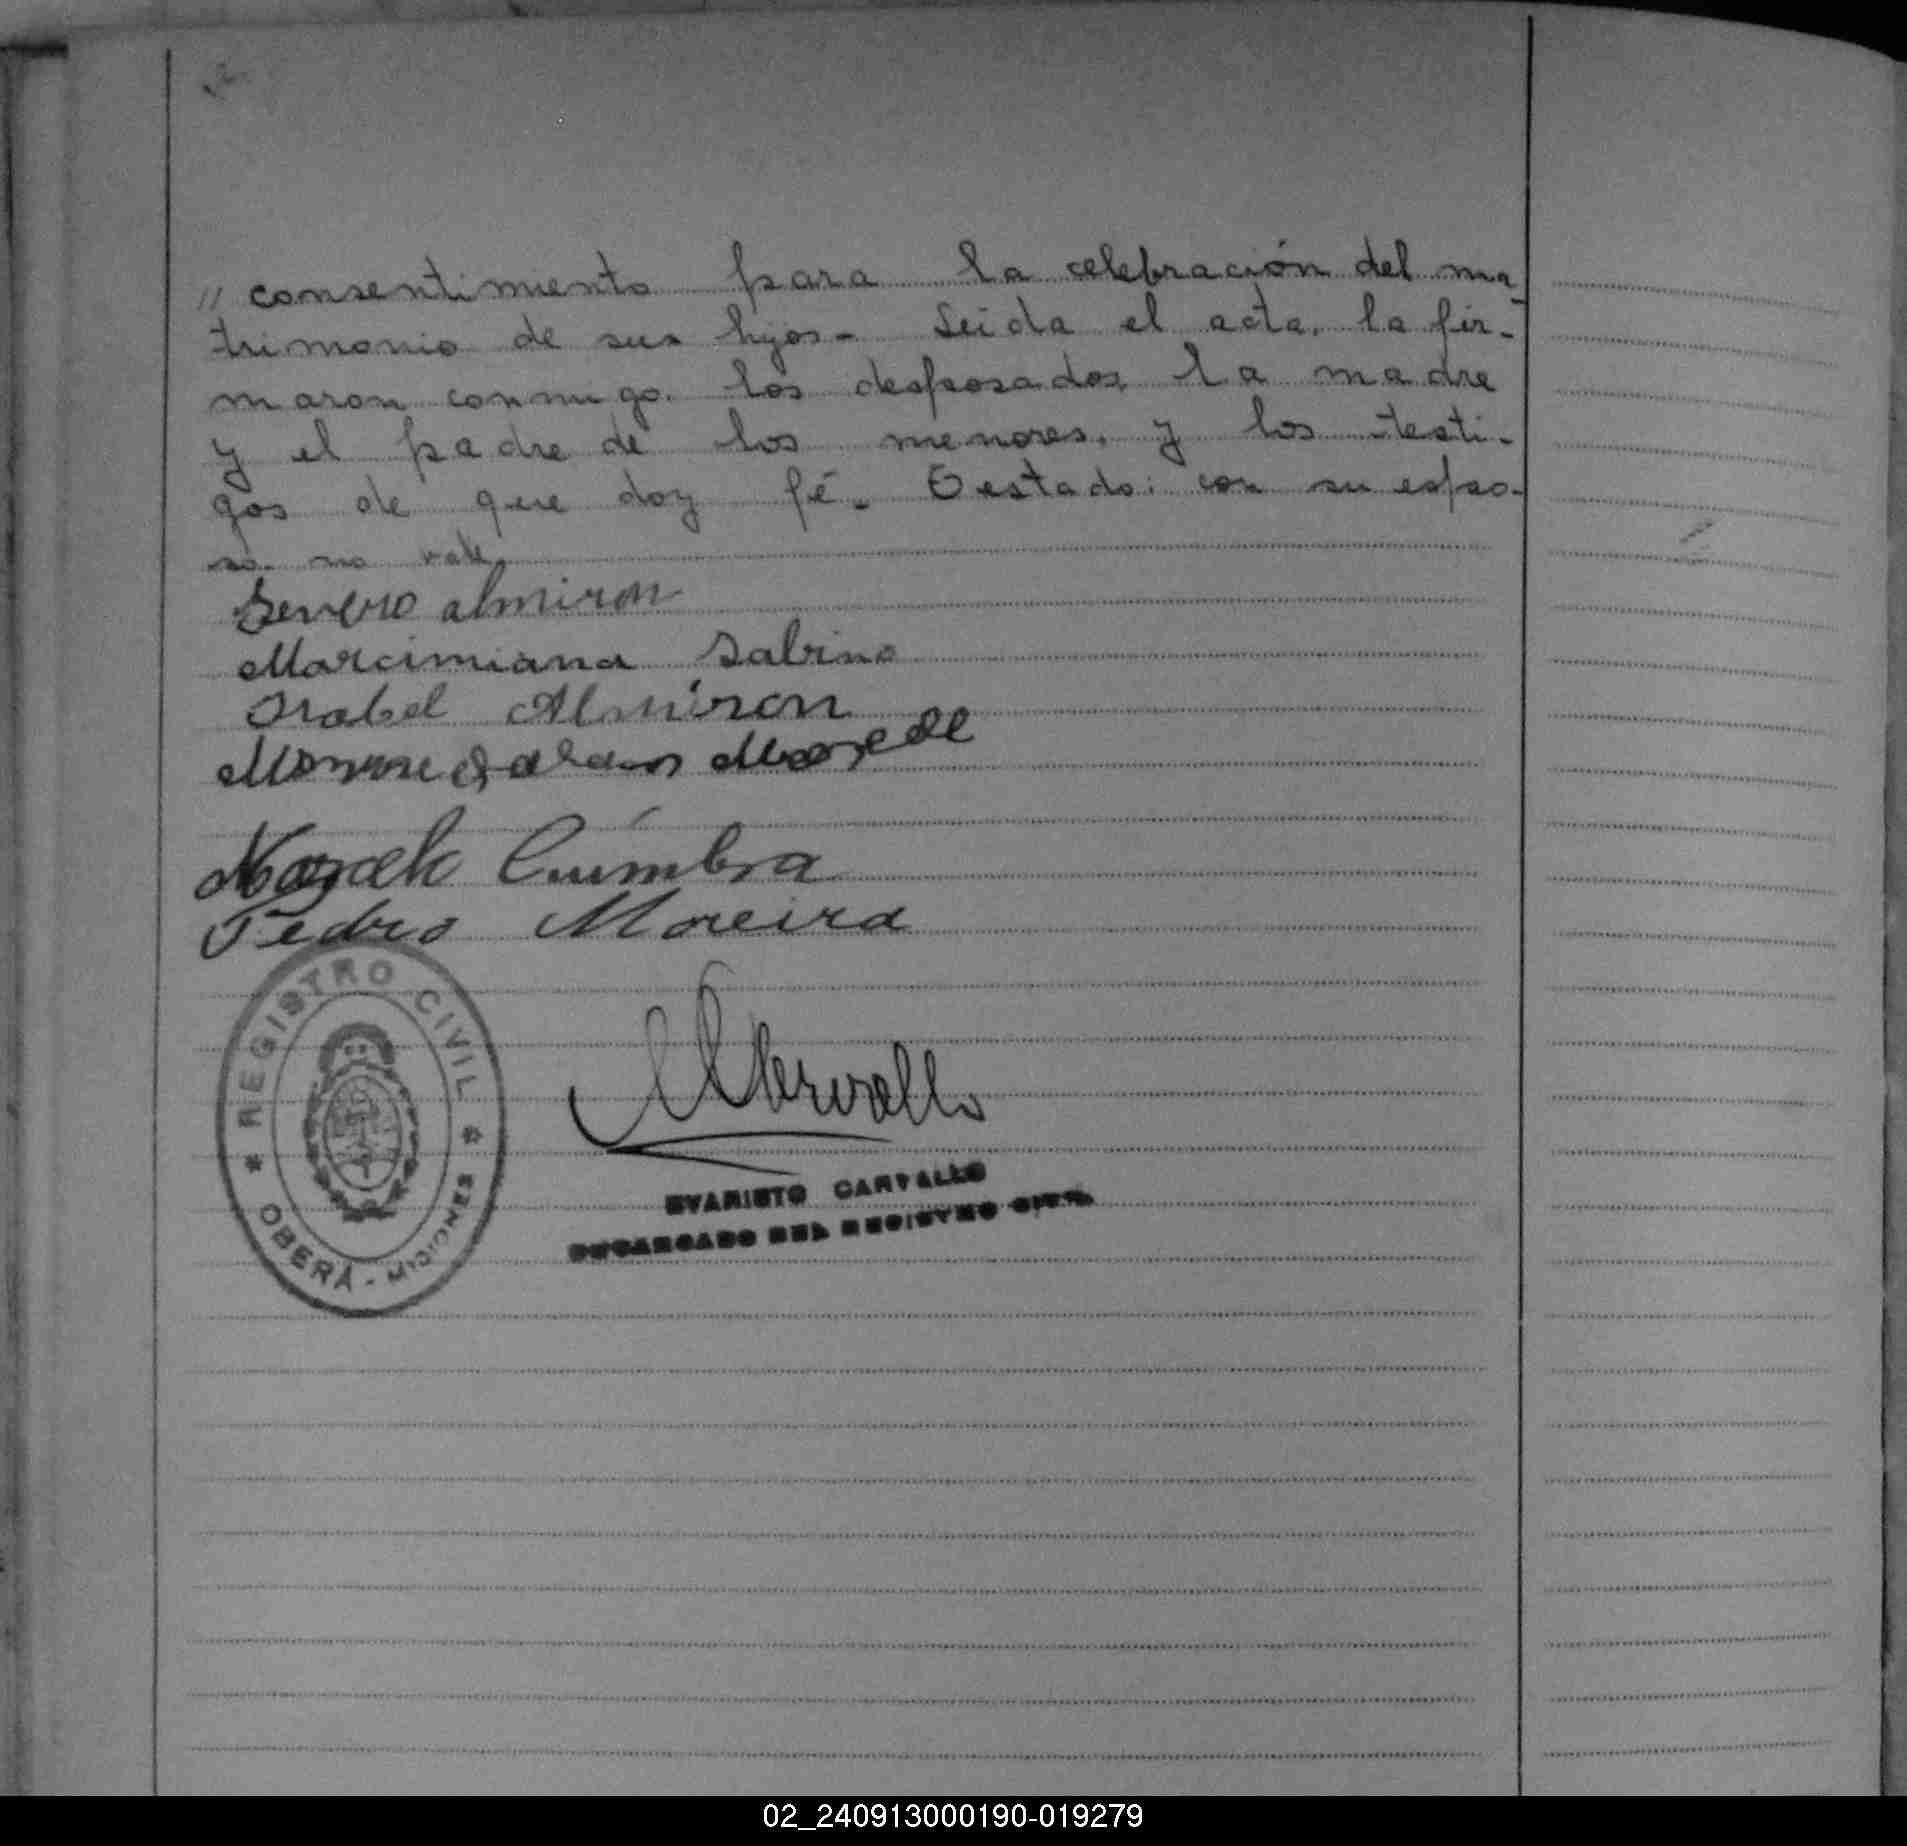 // consentimiento para la celebración del ma-
trimonio de sus hijos - Leida el acta, la fir-
maron conmigo, los desposados la madre
y el padre de los menores, y los testi-
gos de que doy fé. Testado: con su espo-
so no vale
Severo almiron
Marcimiana Sabino
Isabel Almiron
Coimbra
Pedro Moreira
Carvallo
REGISTRO CIVIL
OBERÁ - MISIONES
EVARISTO CARVALLO
ENCARGADO DEL REGISTRO CIVIL
02_240913000190-019279